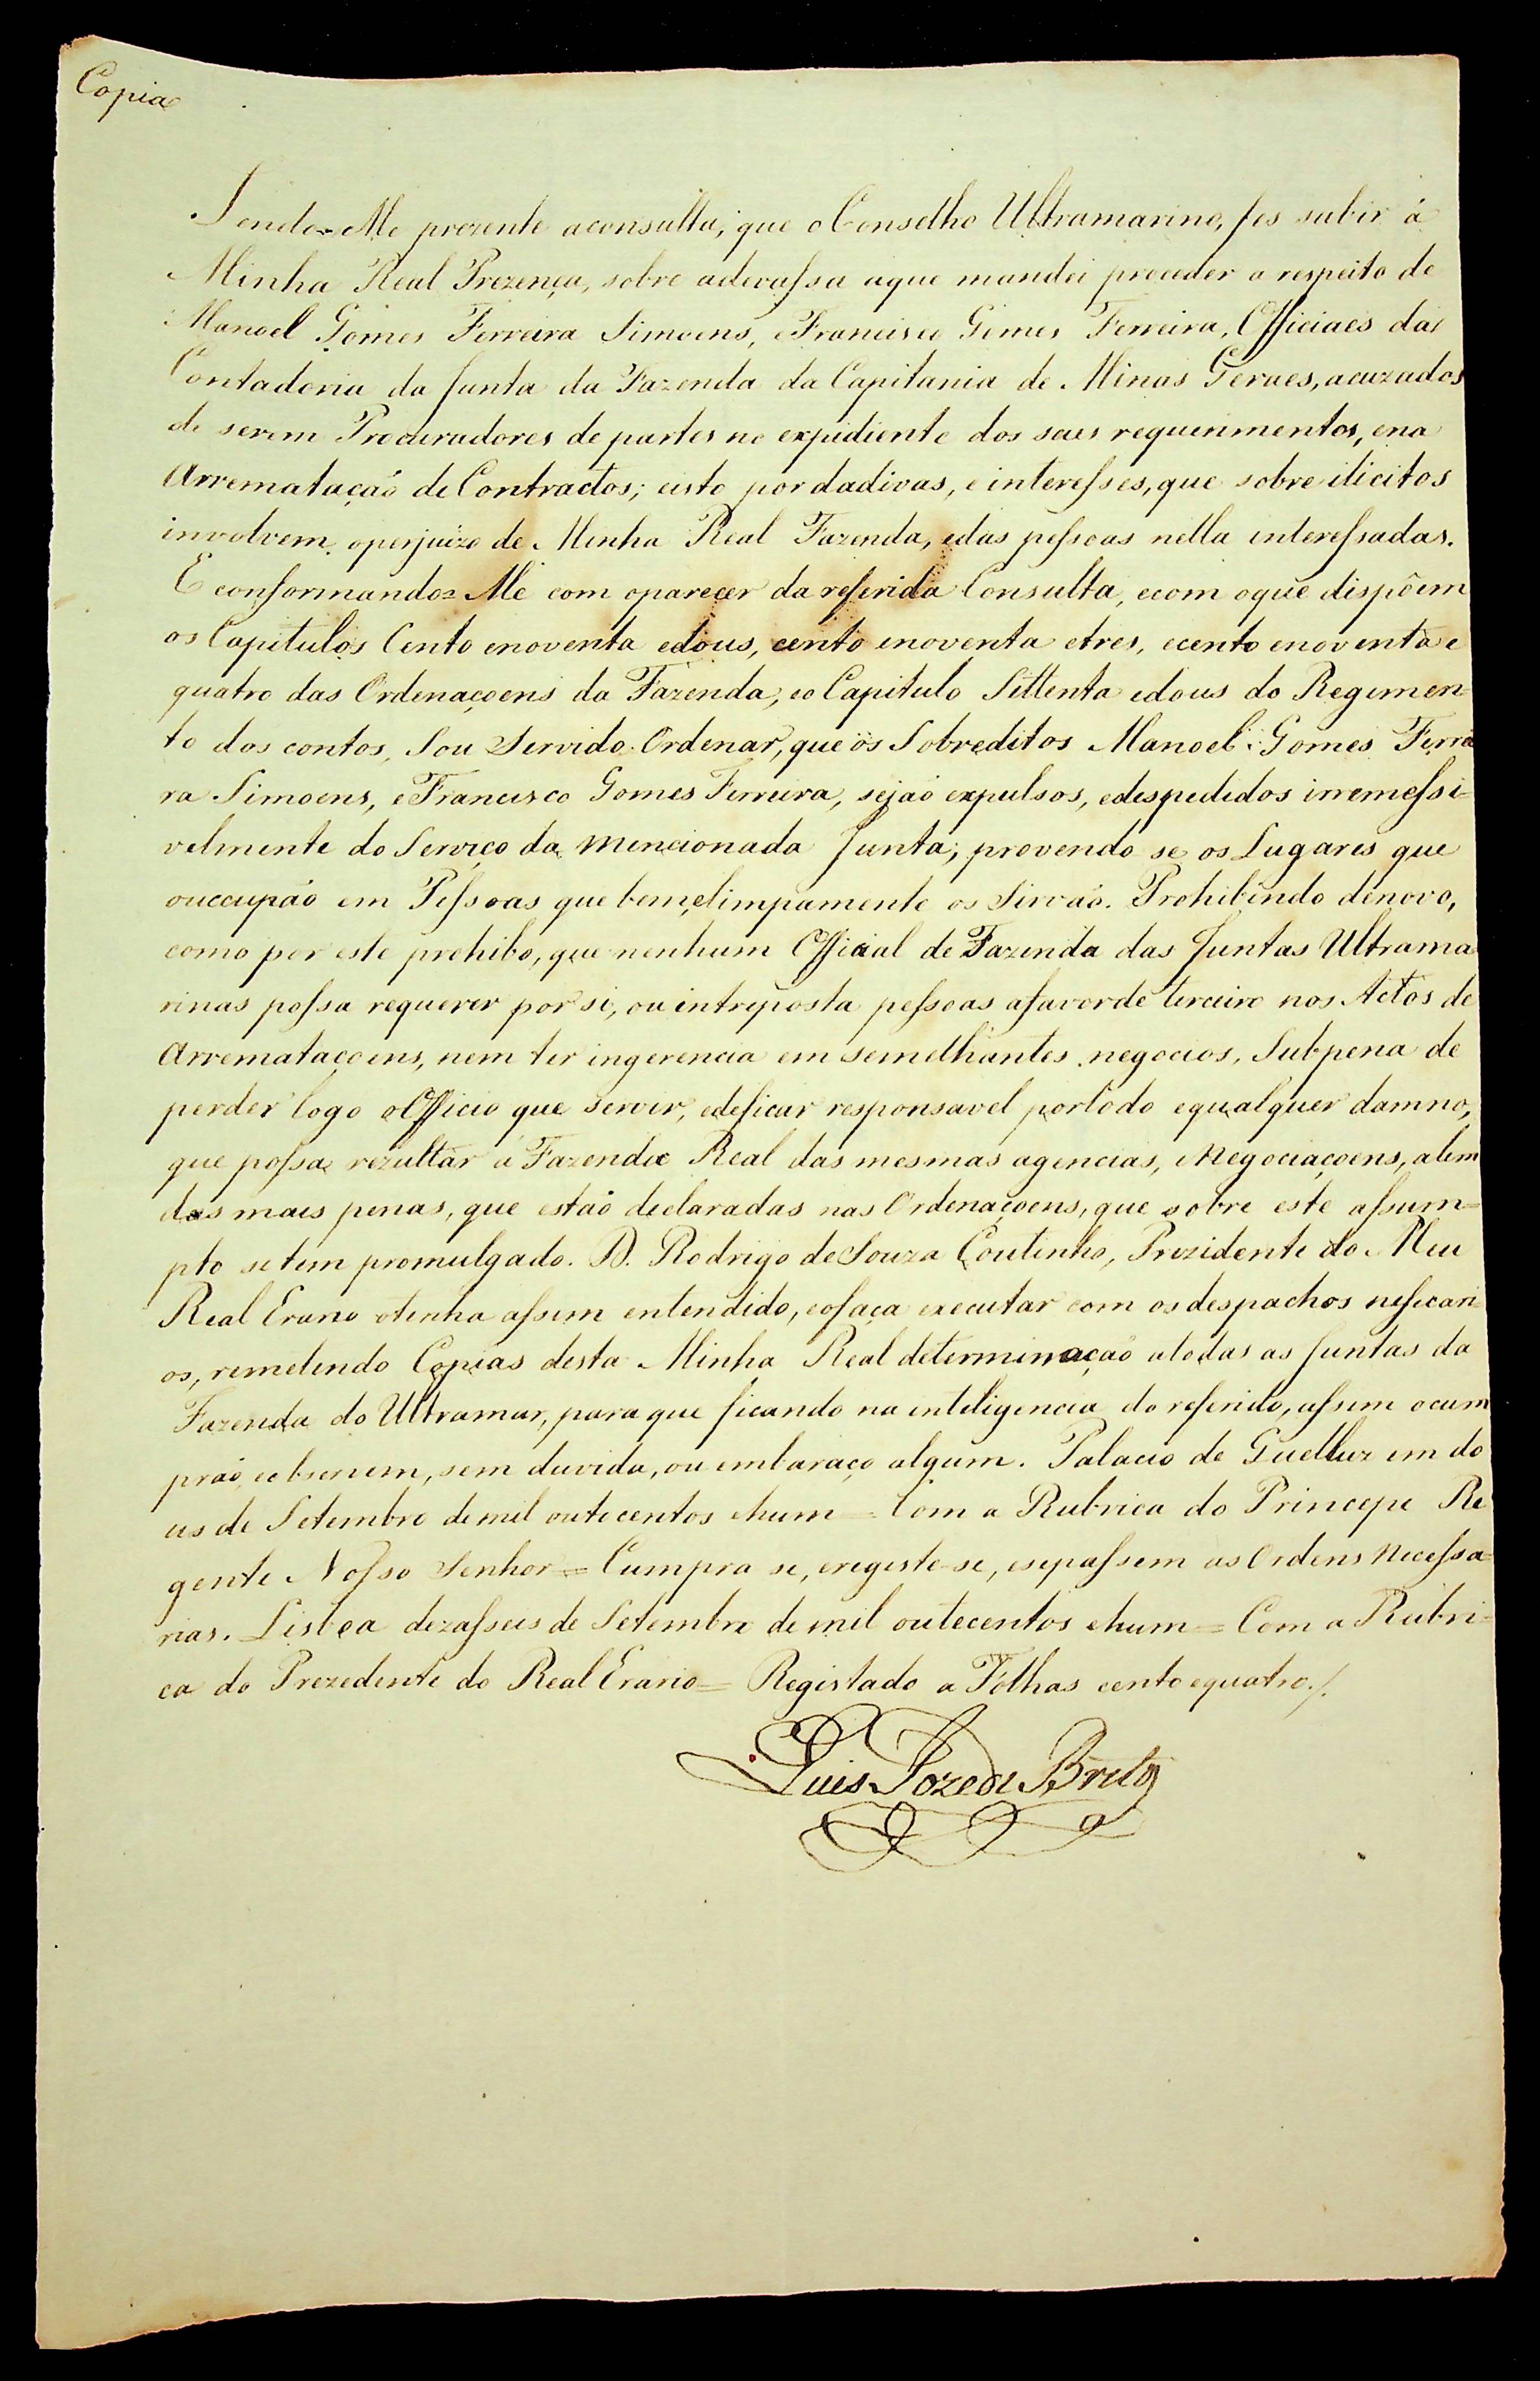 Copia
Sendo=Me prezente aconsulta, que oConselho Ultramarino, fes subir á
Minha Real Prezença, sobre adevassa aque mandei proceder a respeito de
Manoel Gomes Ferreira Simoens, eFrancisco Gomes Ferreira, Officiaes da
Contadoria da Junta da Fazenda da Capitania de Minas Geraes, acuzados
de serem Procuradores de partes no expidiente dos seus requerimentos, ena
Arremataçaõ de Contractos; eisto por dadivas, e interesses, que sobre ilicitos
involvem operjuizo de Minha Real Fazenda, edas pessoas nella interessadas.
E conformando=Me com oparecer da referida Consulta, ecom oque dispõem
os Capitulos Cento enoventa edous, cento enoventa etres, ecento enoventa e
quatro das Ordenaçoens da Fazenda, eo Capitulo Settenta edous do Regimen=
to dos contos, Sou Servido Ordenar, que os Sobreditos Manoel Gomes Ferrei
ra Simoens, eFrancisco Gomes Ferreira, sejaõ expulsos, edespedidos irremessi=
velmente do Serviço da mencionada Junta; provendo se os Lugares que
ouccupaõ em Pessoas que bem, elimpamente os Sirvaõ. Prohibindo denovo,
como por este prohibo, que nenhum Official de Fazenda das Juntas Ultrama
rinas possa requerer por si, ou intreposta pessoas afavorde terceiro nos Actos de
Arremataçoens, nem ter ingerencia em semelhantes negocios, Subpena de
perder logo oOfficio que servir, edeficar responsavel portodo equalquer damno,
que possa rezultar á Fazenda Real das mesmas agencias, eNegociaçoens, alem
das mais penas, que estaõ declaradas nas Ordenaçoens, que sobre este assum=
pto setem promulgado. D. Rodrigo deSouza Coutinho, Prezidente do Meu
Real Erario otenha assim entendido, eofaça executar com os despachos nesecari=
os, remetendo Copias desta Minha Real determinaçaõ atodas as Juntas da
Fazenda do Ultramar, para que ficando na inteligencia do referido, assim ocum
praõ, eobservem, sem duvida, ou embaraço algum. Palacio de Quelluz em do
us de Setembro demil outecentos ehum = Com a Rubrica do Principe Re
gente Nosso Senhor = Cumpra se, eregiste-se, esepassem as Ordens Necessa=
rias. Lisboa dezasseis de Setembro de mil outecentos ehum = Com a Rubri=
ca do Prezedente do Real Erario = Registado a Folhas cento equatro./.
Luis Joze de Brito